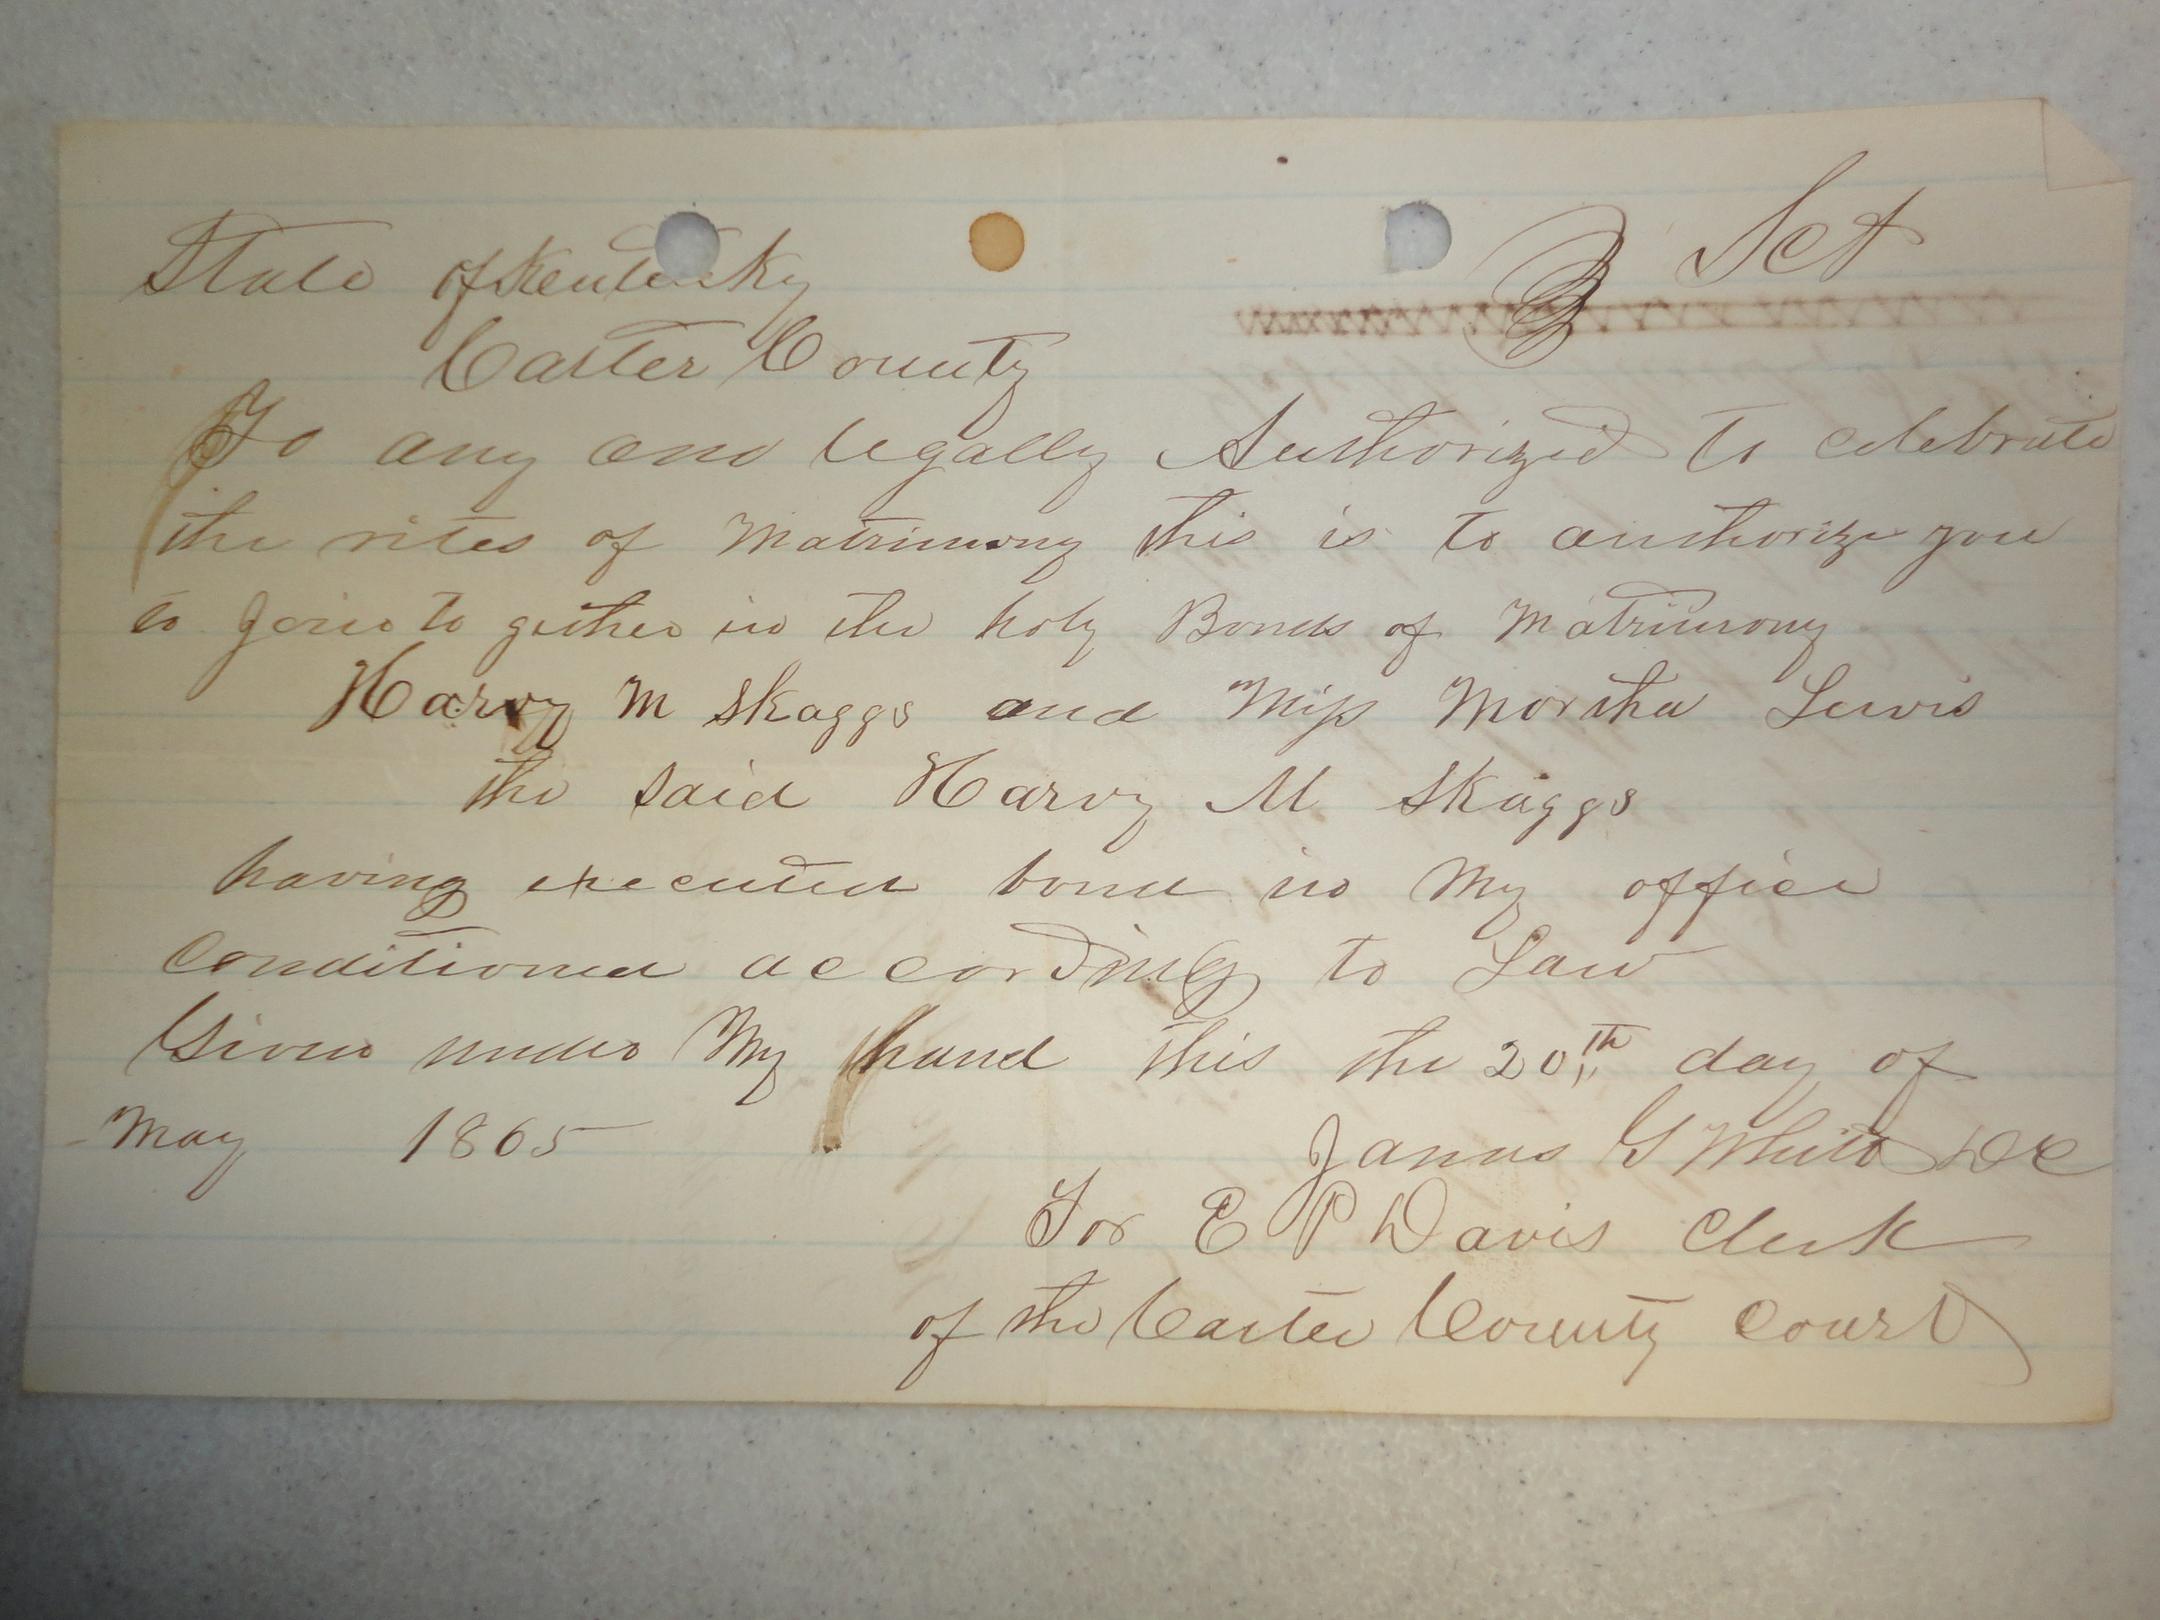 State of Kentucky Sct
Carter County
To any one legally Authorized to celebrate
the rites of Matrimony this is to authorize you
to Join to gether in the holy Bonds of Matrimony
Harvy M Skaggs and Miss Martha Lewis
the said Harvy M Skaggs
having executed bond in My office
conditioned according to Law
Given under My hand this the 20th day of
May 1865
James G Whitt DC
For E P Davis Clerk
of the Carter County Court